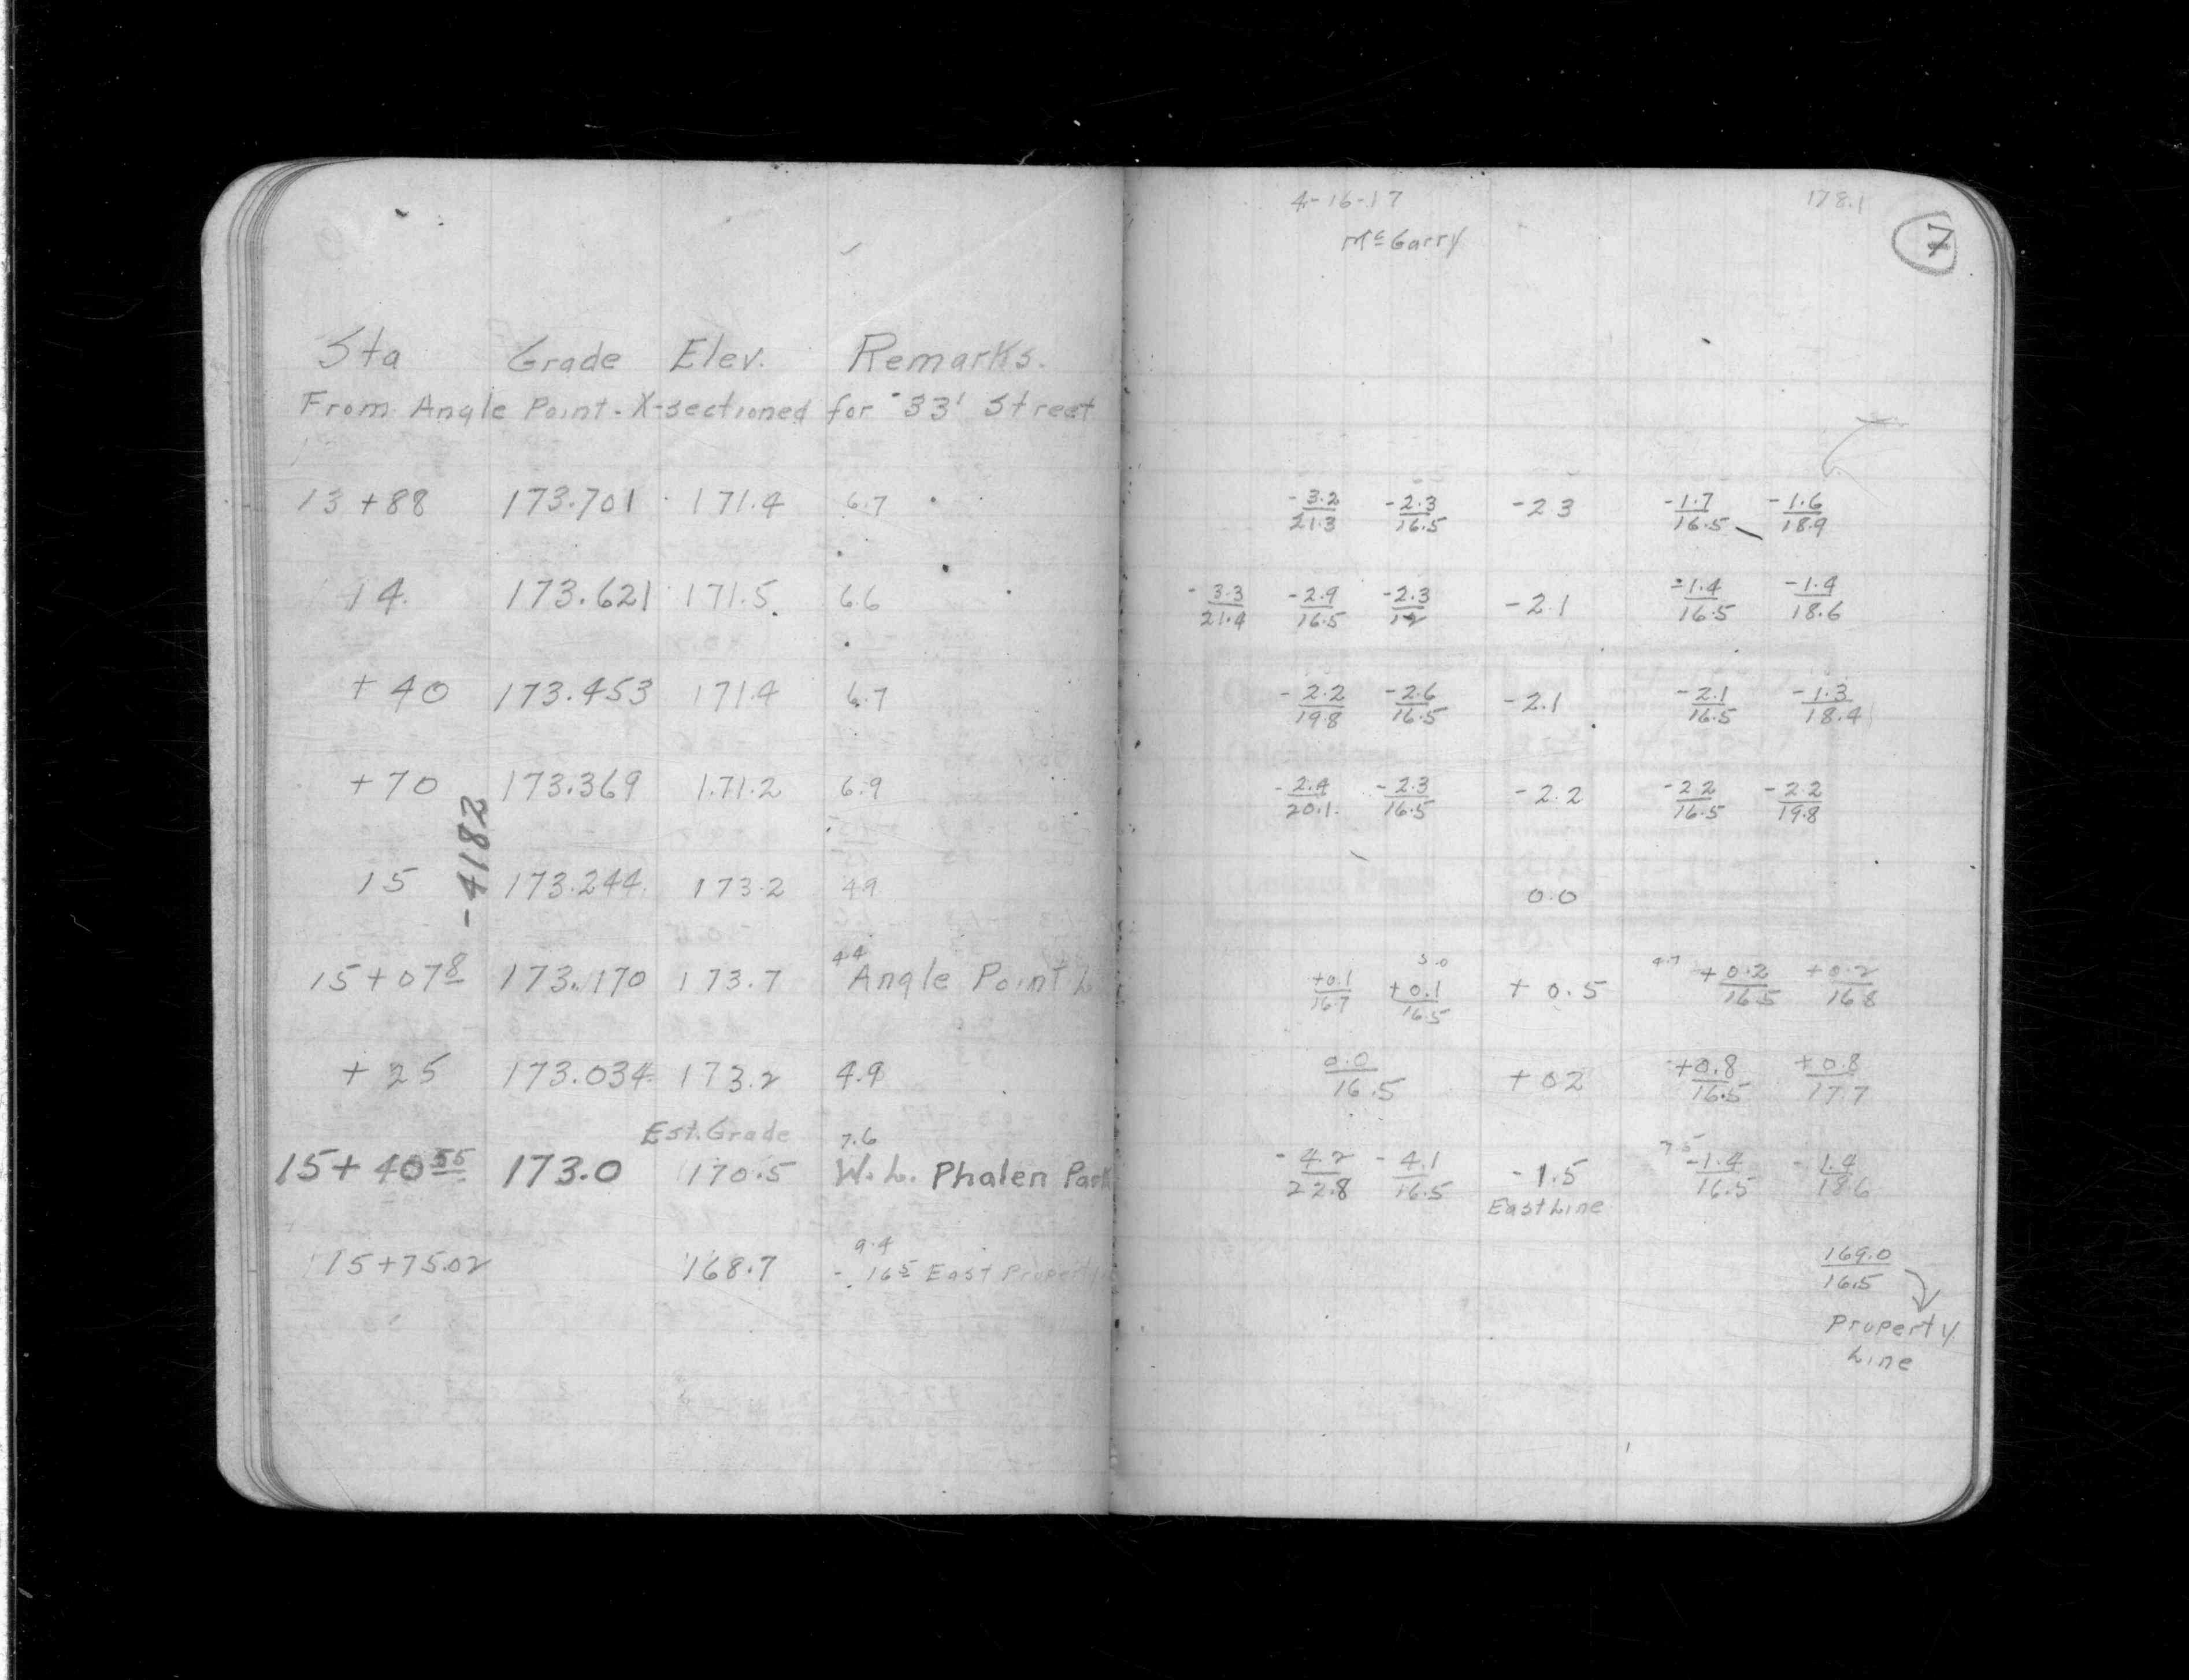 Sta Grade Elev. Remarks.
From Angle Point - X-sectioned for 33' Street
13 +88 173.701 171.4 6.7
14. 173.621 171.5 6.6
+ 40 173.453 171.4 6.7
+ 70 173.369 171.2 6.9
-.4182
15 173.244 173.2 4.9
4.4
15+07⁸ 173.170 173.7 Angle Point
+ 25 173.034 173.2 4.9
Est. Grade 7.6
15+ 40⁵⁵ 173.0 170.5 W. L. Phalen Park
9.4
15+75.02 168.7 - 16⁵ East Property
4-16-17 178.1
McGarry
7
-3.2 -2.3 -2.3 -1.7 -1.6
21.3 16.5 16.5 18.9
-3.3 -2.9 -2.3 -2.1 -1.4 -1.4
21.4 16.5 12 16.5 18.6
-2.2 -2.6 -2.1 -2.1 -1.3
19.8 16.5 16.5 18.4
-2.4 -2.3 -2.2 -2.2 -2.2
20.1 16.5 16.5 19.8
0.0
5.0 4.7
+0.1 +0.1 + 0.5 +0.2 +0.2
16.7 16.5 16.5 16.8
0.0 + 0.2 +0.8 +0.8
16.5 16.5 17.7
7.5
-4.2 -4.1 -1.5 -1.4 -1.4
22.8 16.5 16.5 18.6
East Line
169.0
16.5
Property
Line